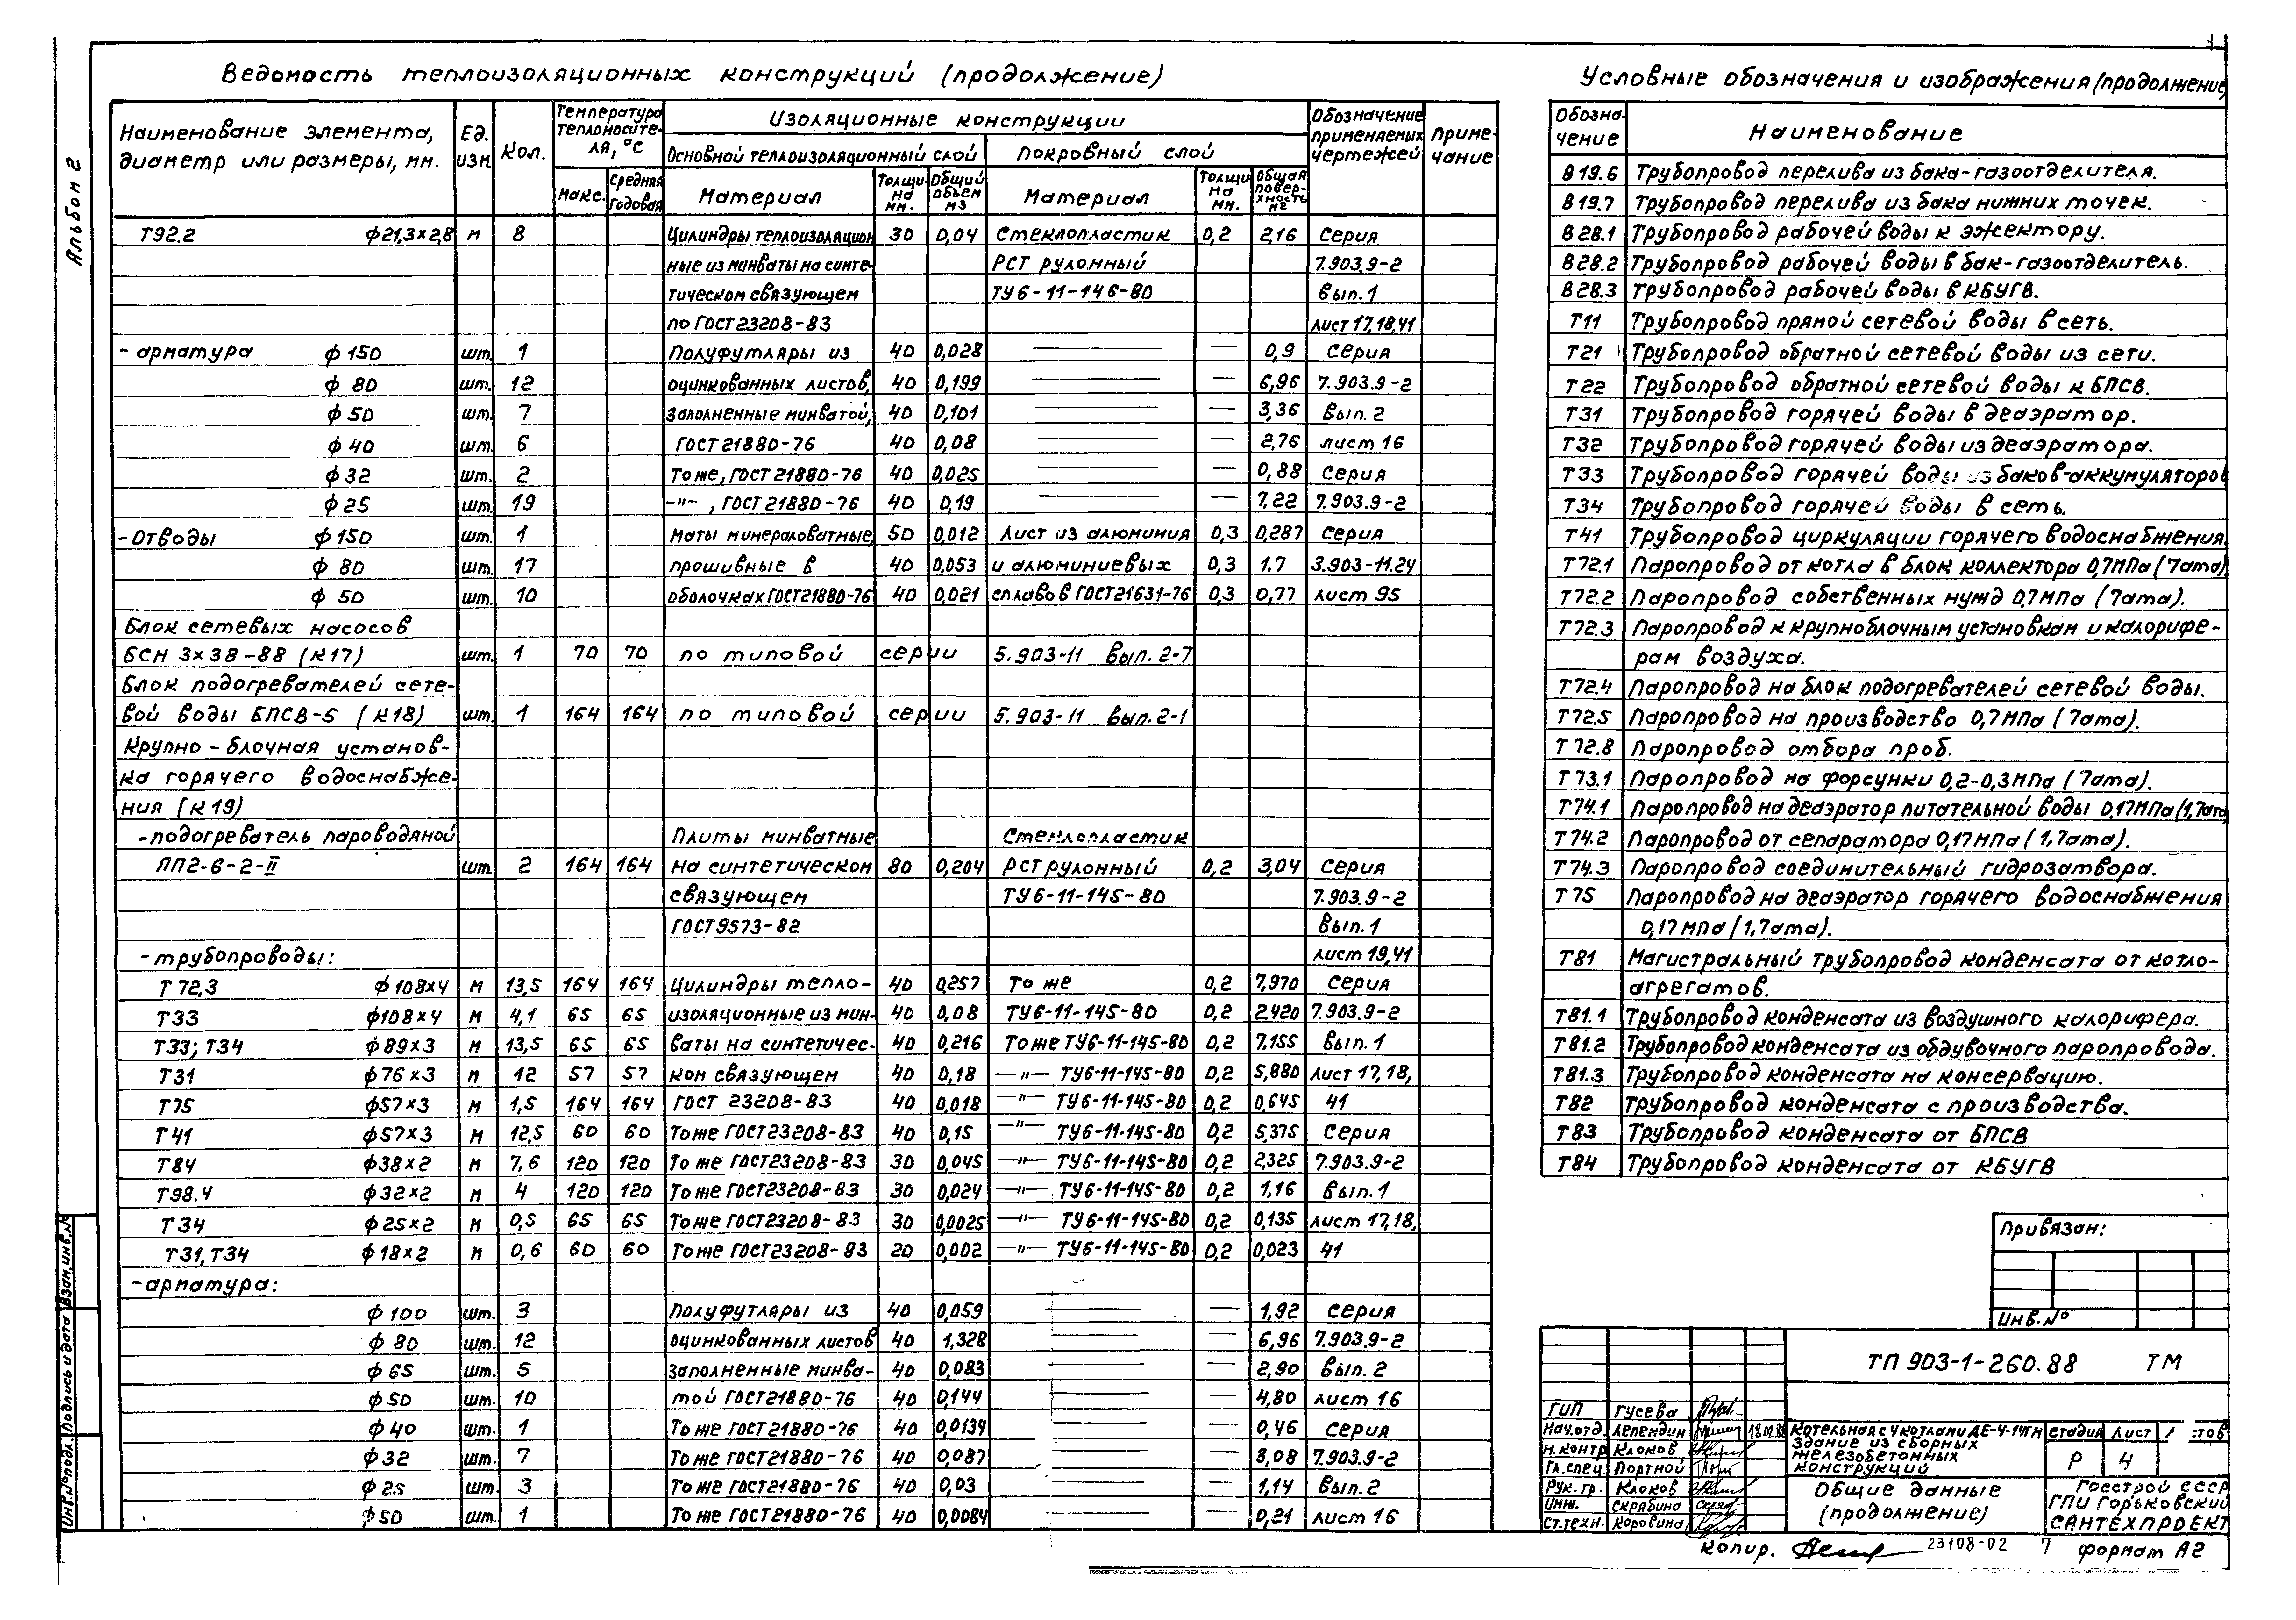 Альбом 2
Ведомость теплоизоляционных конструкций (продолжение)
Наименование элемента, диаметр или размеры, мм. | Ед. изм. | Кол. | Температура теплоносителя, °С | Изоляционные конструкции | Обозначение применяемых чертежей | Примечание
Основной теплоизоляционный слой | Покровный слой
Макс. | Средняя годовая | Материал | Толщина мм. | Общий объем м3 | Материал | Толщина мм. | Общая поверхность м2
Т92.2 ф21,3×2,8 м 8 Цилиндры теплоизоляцион 30 0,04 Стеклопластик 0,2 2,16 Серия
ные из минваты на синте- РСТ рулонный 7.903.9-2
тическом связующем ТУ6-11-146-80 Вып. 1
по ГОСТ 23208-83 лист 17,18,41
- арматура ф 150 шт. 1 Полуфутляры из 40 0,028 — 0,9 Серия
ф 80 шт. 12 оцинкованных листов, 40 0,199 — — 6,96 7.903.9-2
ф 50 шт. 7 заполненные минватой, 40 0,101 — — 3,36 Вып. 2
ф 40 шт. 6 ГОСТ 21880-76 40 0,08 — — 2,76 лист 16
ф 32 шт. 2 То же, ГОСТ 21880-76 40 0,025 — — 0,88 Серия
ф 25 шт. 19 -"-, ГОСТ 21880-76 40 0,19 — — 7,22 7.903.9-2
- Отводы ф 150 шт. 1 Маты минераловатные, 50 0,012 Лист из алюминия 0,3 0,287 Серия
ф 80 шт. 17 прошивные в 40 0,053 и алюминиевых 0,3 1.7 3.903-11.24
ф 50 шт. 10 оболочках ГОСТ 21880-76 40 0,021 сплавов ГОСТ 21631-76 0,3 0,77 лист 95
Блок сетевых насосов
БСН 3×38-88 (К17) шт. 1 70 70 по типовой серии 5.903-11 Вып. 2-7
Блок подогревателей сете-
вой воды БПСВ-5 (К18) шт. 1 164 164 по типовой серии 5.903-11 вып. 2-1
Крупно-блочная установ-
ка горячего водоснабже-
ния (К19)
- подогреватель пароводяной Плиты минватные Стеклопластик
ПП2-6-2-II шт 2 164 164 на синтетическом 80 0,204 РСТ рулонный 0,2 3,04 Серия
связующем ТУ6-11-145-80 7.903.9-2
ГОСТ 9573-82 Вып. 1
- трубопроводы: лист 19,41
Т72,3 ф 108×4 м 13,5 164 164 Цилиндры тепло- 40 0,257 То же 0,2 7,970 Серия
Т33 ф108×4 м 4,1 65 65 изоляционные из мин- 40 0,08 ТУ6-11-145-80 0,2 2,420 7.903.9-2
Т33; Т34 ф 89×3 м 13,5 65 65 ваты на синтетичес- 40 0,216 То же ТУ6-11-145-80 0,2 7,155 Вып. 1
Т31 ф76×3 м 12 57 57 ком связующем 40 0,18 -"- ТУ6-11-145-80 0,2 5,880 лист 17,18,
Т75 ф57×3 м 1,5 164 164 ГОСТ 23208-83 40 0,018 -"- ТУ6-11-145-80 0,2 0,645 41
Т41 ф57×3 м 12,5 60 60 То же ГОСТ 23208-83 40 0,15 -"- ТУ6-11-145-80 0,2 5,375 Серия
Т84 ф38×2 м 7,6 120 120 То же ГОСТ 23208-83 30 0,045 -"- ТУ6-11-145-80 0,2 2,325 7.903.9-2
Т98.4 ф32×2 м 4 120 120 То же ГОСТ 23208-83 30 0,024 -"- ТУ6-11-145-80 0,2 1,16 Вып. 1
Т34 ф25×2 м 0,5 65 65 То же ГОСТ 23208-83 30 0,0025 -"- ТУ6-11-145-80 0,2 0,135 лист 17,18,
Т31, Т34 ф18×2 м 0,6 60 60 То же ГОСТ 23208-83 20 0,002 -"- ТУ6-11-145-80 0,2 0,023 41
- арматура:
ф 100 шт. 3 Полуфутляры из 40 0,059 — — 1,92 Серия
ф 80 шт. 12 оцинкованных листов 40 1,328 — — 6,96 7.903.9-2
ф 65 шт. 5 заполненные минва- 40 0,083 — — 2,90 Вып. 2
ф50 шт. 10 той ГОСТ 21880-76 40 0,144 — — 4,80 лист 16
ф40 шт. 1 То же ГОСТ 21880-76 40 0,0134 — — 0,46 Серия
ф32 шт. 7 То же ГОСТ 21880-76 40 0,087 — — 3,08 7.903.9-2
ф25 шт. 3 То же ГОСТ 21880-76 40 0,03 — — 1,14 Вып. 2
ф50 шт. 1 То же ГОСТ 21880-76 40 0,0084 — — 0,21 лист 16
Условные обозначения и изображения (продолжение)
Обозначение | Наименование
В19.6 Трубопровод перелива из бака-газоотделителя.
В19.7 Трубопровод перелива из бака нижних точек.
В28.1 Трубопровод рабочей воды к эжектору.
В28.2 Трубопровод рабочей воды в бак-газоотделитель.
В28.3 Трубопровод рабочей воды в КБУГВ.
Т11 Трубопровод прямой сетевой воды в сеть.
Т21 Трубопровод обратной сетевой воды из сети.
Т22 Трубопровод обратной сетевой воды к БПСВ.
Т31 Трубопровод горячей воды в деаэратор.
Т32 Трубопровод горячей воды из деаэратора.
Т33 Трубопровод горячей воды из баков-аккумуляторов
Т34 Трубопровод горячей воды в сеть.
Т41 Трубопровод циркуляции горячего водоснабжения.
Т72.1 Паропровод от котла в блок коллектора 0,7МПа (7ата)
Т72.2 Паропровод собственных нужд 0,7МПа (7ата).
Т72.3 Паропровод к крупноблочным установкам и калорифе-
рам воздуха.
Т72.4 Паропровод на блок подогревателей сетевой воды.
Т72.5 Паропровод на производство 0,7МПа (7ата).
Т72.8 Паропровод отбора проб.
Т73.1 Паропровод на форсунки 0,2-0,3МПа (7ата).
Т74.1 Паропровод на деаэратор питательной воды 0,17МПа (1,7ата
Т74.2 Паропровод от сепаратора 0,17МПа (1,7ата).
Т74.3 Паропровод соединительный гидрозатвора.
Т75 Паропровод на деаэратор горячего водоснабжения
0,17МПа (1,7ата).
Т81 Магистральный трубопровод конденсата от котло-
агрегатов.
Т81.1 Трубопровод конденсата из воздушного калорифера.
Т81.2 Трубопровод конденсата из обдувочного паропровода.
Т81.3 Трубопровод конденсата на консервацию.
Т82 Трубопровод конденсата с производства.
Т83 Трубопровод конденсата от БПСВ
Т84 Трубопровод конденсата от КБУГВ
Привязан:
Инв. №
ТП 903-1-260.88 ТМ
ГИП Гусева
Нач.отд. Лепендин 18.02.88
Н.контр Клоков
Гл.спец. Портной
Рук. гр. Клоков
Инж. Скрябина
Ст.техн. Коровина
Котельная с 4 котлами ДЕ-4-14ГМ
Здание из сборных
железобетонных
конструкций
Стадия Лист
Р 4
Общие данные
(продолжение)
Госстрой СССР
ГПИ Горьковский
САНТЕХПРОЕКТ
Копир. 23108-02 7 формат А2
Инв.№подл. Подпись и дата Взам.инв.№